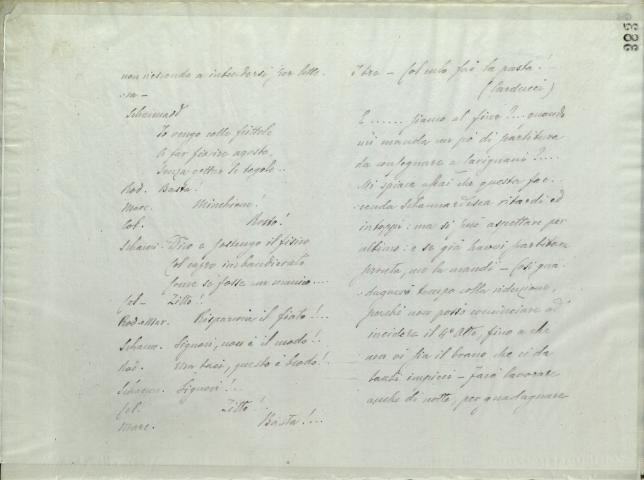 383
non risponde a intendersi per lette
ra -
Schaunard
Io vengo colle frittole
a far finire agosto,
senza rotter le tegole..
Rod. Basta!
Marc. Minchione!
Col. Rosto!
Schaun. Dico e sostengo il fisico
Col capro imbandierato
Come se fosse un
Col - Zitto!!
Rod. e Mar. Risparmia il fiato!..
Schaun. Signori, non è il modo!..
Rod. Ma taci, questo è brodo!
Schaun. Signori!..
Col. Zitto!..
Marc. Basta!...
I tre - Col culo fai la pasta!
(Carducci)
E ...... siamo al fine?... quando
mi manda un pò di partitura
da consegnare a Carignani?....
Mi spiace assai che questa fac-
cenda Schaunardesca ritardi ed
intoppi: ma si può aspettare per
ultimo: e se già havvi partitura
pronta, me la mandi - Così gua-
dagnerò tempo colla riduzione,
perchè non posso cominciare ad
incidere il 4º Atto, fino a che
non vi sia il brano che ci dà
tanti impicci - Farò lavorare
anche di notte, per guadagnare